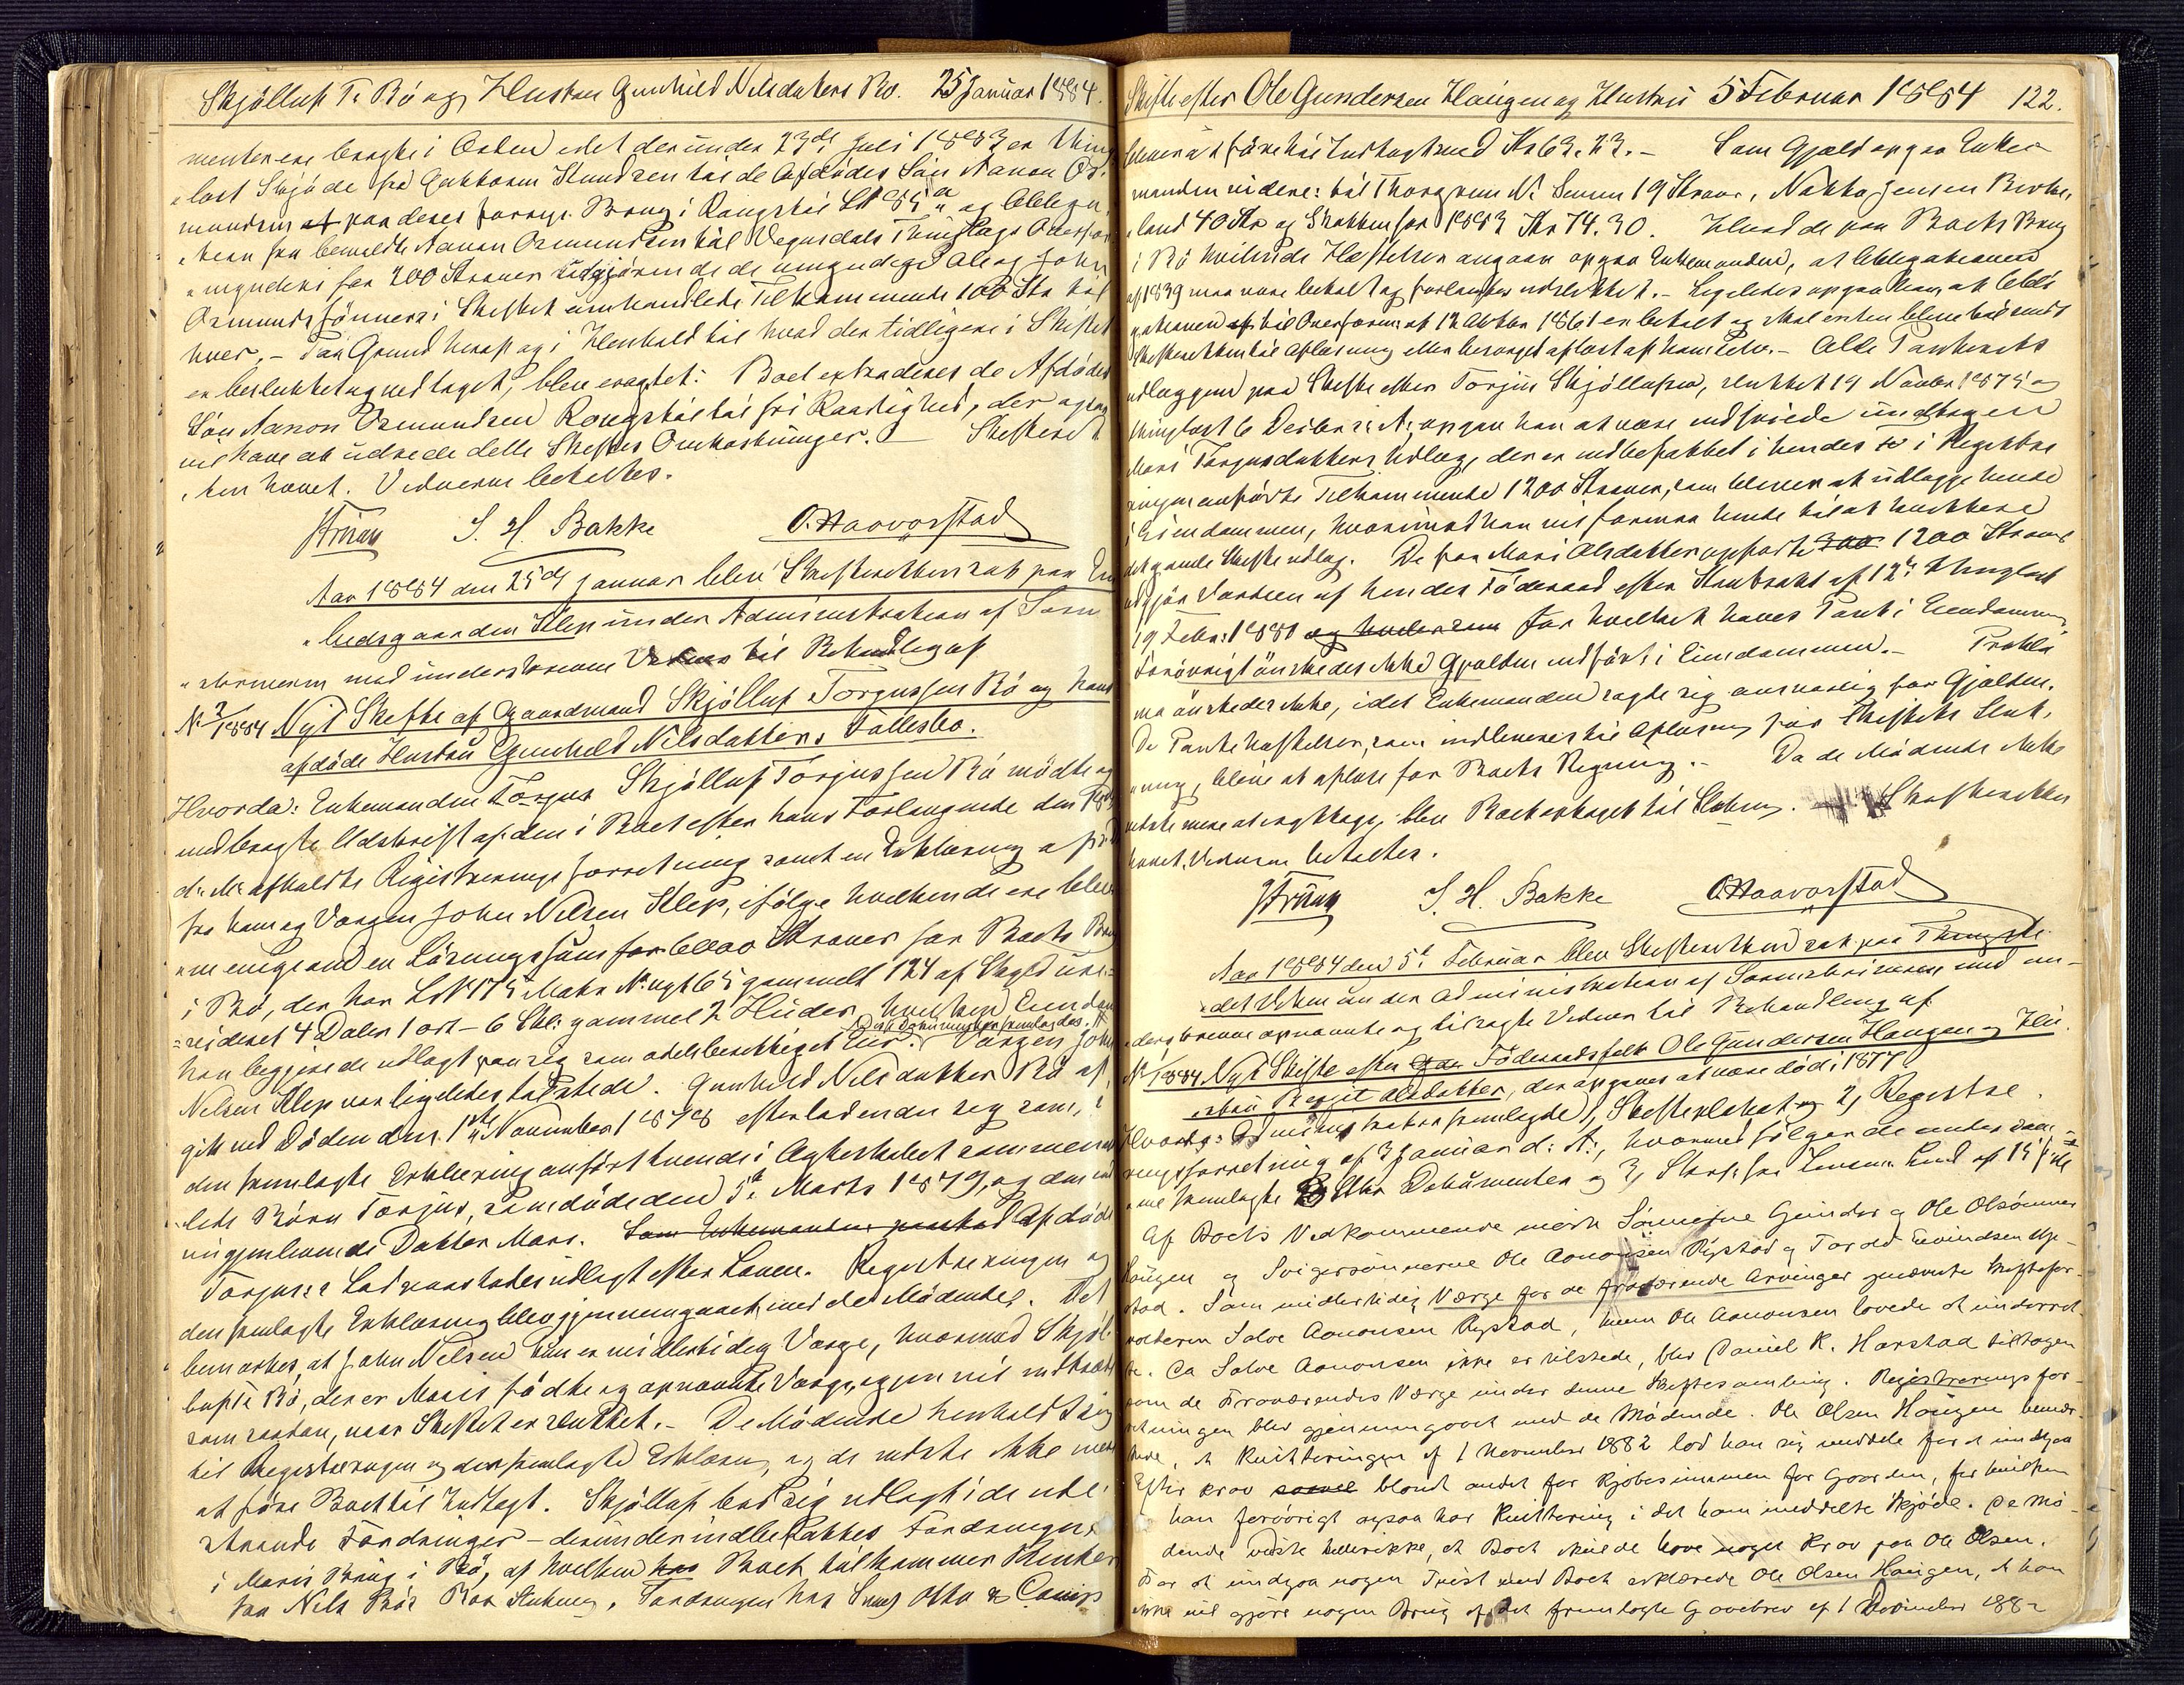 Skjölluf T. Bö og Hustru Gunhild Nilsdatters Bo. 25 Januar 1884.
menterne bragte i Orden idet der under 23de Juli 1883 er thing
löst Skjöde fra Guttorm Knudsen til de Afdödes Sön Aanon Os-
mundsen at paa deres forrige Brug i Rongstöl og Obliga-
tion fra bemeldte Aanon Osmundsen til Vegusdals Thinglags Overfor
mynderi for 200 Kroner udgjörende de umyndige Ole og John
Osmundssönners i Skiftet omhandlede Tilkommende 100 Kr til
hver. – Paa Grund heraf og i Henhold til hvad der tidligere i Skiftet
er besluttet og vedtaget, blev eragtet: Boet extraderes de Afdödes
Sön Aanon Osmundsen Rongstöl til fri Raadighed, der ogsaa
vil have at udrede dette Skiftes Omkostninger. Skifteret
ten hævet. Vidnerne betaltes.
S. H. Bakke O. Haavorstad
Aar 1884 den 25de Januar blev Skifteretten sat paa En
kesædegaarden Klep under Administration af Soren
skriveren med underskrevne Vidner til Behandling af
No 2/1884 Nyt Skifte af Gaardmand Skjölluf Torjussen Bö og hans
afdöde Hustru Gunhild Nilsdatter, Fallesbo.
Hvorda: Enkemanden Torjus Skjölluf Torjussen Bö mödte og
medbragte Udskrift af den i Boet efter hans Forlangende den
d: M: afholdte Registreringsforretning samt en Erklæring af
fra ham og Værgen John Nilsen Klep, ifölge hvilken de ere bleven
enige om en Lösningssum for 6000 Kroner for Boets Brug
i Bö, der har LNo 175 Matr No nyt 65 gammelt 124 af Skyld ure-
videret 4 Daler 1 ort – 6 Skl: gammel 2 Huder, hvilken Eiendom
han begjærede udlagt paa sig som odelsberettiget Eier. Værgen John
Nilsen Klep var ligeledes tilstede. Gunhild Nilsdatter Bö af-
gik ved Döden den 1ste November 1878 efterladende sig som i
den fremlagte Erklæring anfört tvende i Ægteskabet sammenav-
lede Börn Torjus, som döde den 5te Marts 1879, og den nu
nugjenlevende Datter Mari. Som Enkemanden paastod Afdöde
Torjuses Lod paastodes udlagt efter Loven. Registreringen og
den fremlagte Erklæring blev gjennemgaaet med de Mödende. Det
bemærkes, at John Nilsen kun er midlertidig Værge, hvormed Skjöl-
luf T. Bö, der er Maris födte og opnævnte Værge, igjen vil indtræde
som saadan, naar Skiftet er sluttet. – De Mödende henholdt sig
til Registreringen og den fremlagte Erklæring, og de vidste ikke mere
at före Boet til Indtægt. Skjölluf bad sig udlagt i de ude-
staaende Fordringer – derunder indbefattes Fordringen
i Maris Brug i Bö, af hvilken har Boet tilkommer Renter
Skifte efter Ole Gundersen Haugen og Hustru 5 Februar 1884 122.
at före til Indtægt med Kr 63.23. – Som Gjæld opgav Enke-
manden videre: til Thorgrim N. Senum 19 Kroner, Nokko Jensen Birke-
land 40 Kr og Skatten for 1883 Kr 74.30. Hvad de paa Boets Brug
i Bö hvilende Hæftelser angaar opgav Enkemanden, at Obligationen
af 1839 maa være betalt og forlanges udslettet. – Ligeledes opgav han, at Obli-
gationen af til Overform. af 12 Oktbr 1861 er betalt og skal enten blive tilsendt
Skifteretten til Aflæsning eller besörget aflæst af ham selv. – Alle Panterets
udlæggene paa Skifte efter Torjus Skjöllufsen, sluttet 19 Novbr 1875 og
thinglæst 6 Decbr s: A:, opgav han at være indfriede undtagen
Mari Torjusdatters Udlæg, der er indbefattet i hendes i Registre-
ringen anförte Tilkommende 1200 Kroner, som bliver at udlægge hende
i Eiendommen, hvorimod han vil formaa hende til at kvittere
det gamle Skifteudlæg. De for Mari Olsdatter opförte 300 1200 Kroner
udgjör Værdien af hendes Föderaad efter Kontrakt af 12te thinglæst
19 Febr: 1880 og hvilersom for hvilket haves Pant i Eiendommen.
Forövrigt önskedes ikke Gjælden indfört i Eiendommen. – Prokla-
ma önskedes ikke, idet Enkemanden sagde sig ansvarlig for Gjælden.
De Pantehæftelser, som indleveres til Aflæsning för Skiftets Slut-
ning, blive at aflæse for Boets Regning. – Da de Mödende ikke
vidste mere at iagttage, blev Boet optaget til Slutning. Skifteretten
hævet. Vidnerne betaltes.
S. H. Bakke O. Haavorstad
Aar 1884 den 5te Februar blev Skifteretten sat paa Thingste-
det under Administration af Sorenskriveren med un-
derskrevne opnævnte og tilsagte Vidner til Behandling af
No /1884. Nyt Skifte efter Föderaadsfolk Ole Gundersen Haugen og Hu-
stru Birgit Olsdatter, der opgives at være död i 1877.
Hvorda: Administrator fremlagde 1, Skifteplakat og 2, Registre-
ringsforretning af 3 Januar d: A:, hvormed fölgende under samme
fremlagte Dokumenter og 3, Skr. fra Lensm. Lund af 15 f. M.
Af Boets Vedkommende mödte Sönnerne Gunder og Ole Olssönner
Haugen og Svigersönnerne Ole Aanonsen Rystad og Torald Eivindsen Uge-
stad. Som midlertidig Værge for de fraværende Arvinger opnævnte Skiftefor-
valteren Salve Aanonsen Rystad, hvem Ole Aanonsen lovede at underret-
te. Da Salve Aanonsen ikke er tilstede, blev Daniel K. Harstad tiltagen
som de Fraværendes Værge under denne Skiftesamling. Registreringsfor-
retningen blev gjennemgaaet med de Mödende. Ole Olsen Haugen bemær-
kede, at Kvitteringen af 1 November 1882 lod han sig meddele for at undgaa
Efter krav saavel blandt andet for Kjöbesummen for Gaarden, for hvilken
han forövrigt ogsaa har Kvittering i det ham meddelte Skjöde. De Mö-
dende vidste heller ikke, at Boet skulde have noget Krav paa Ole Olsen.
For at undgaa nogen Tvist med Boet erklærede Ole Olsen Haugen, at han
ikke vil gjöre nogen Brug af det fremlagte Gavebrev af 1 November 1882